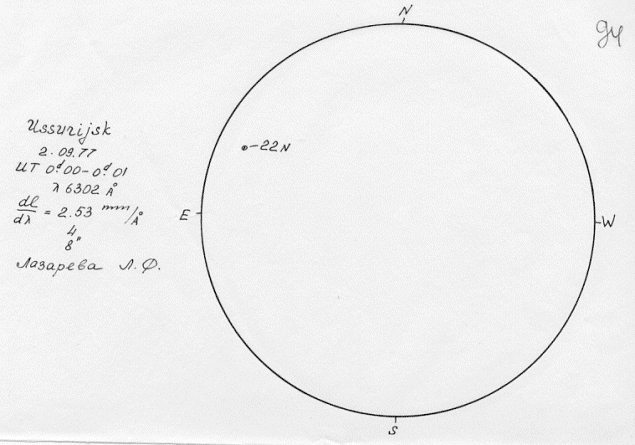 N
94
Ussurijsk
2.09.77
UT 0ᵈ.00-0ᵈ.01
λ 6302 Å
dl/dλ = 2.53 mm/Å
4
8"
Лазарева Л.Ф.
-22N
E
W
S